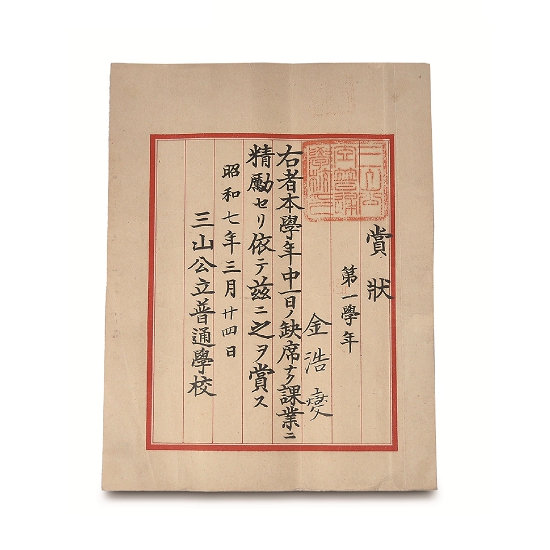 賞狀
第一學年
金浩燮
右者本學年中一日ノ缺席ナク課業ニ
精勵セリ依テ玆ニ之ヲ賞ス
昭和七年三月廿四日
三山公立普通學校